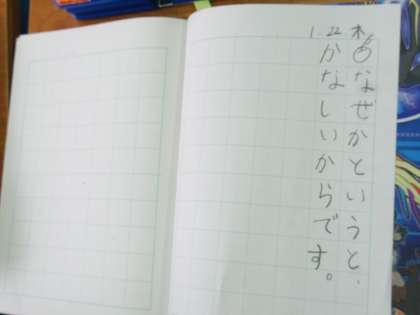 1-22 木
あなぜかというと、
かなしいからです。